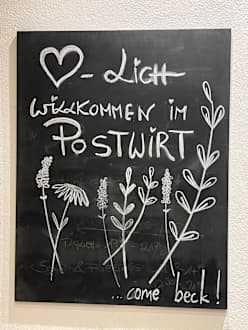 ♡-LICH
WILLKOMMEN IM
POSTWIRT
...come beck!